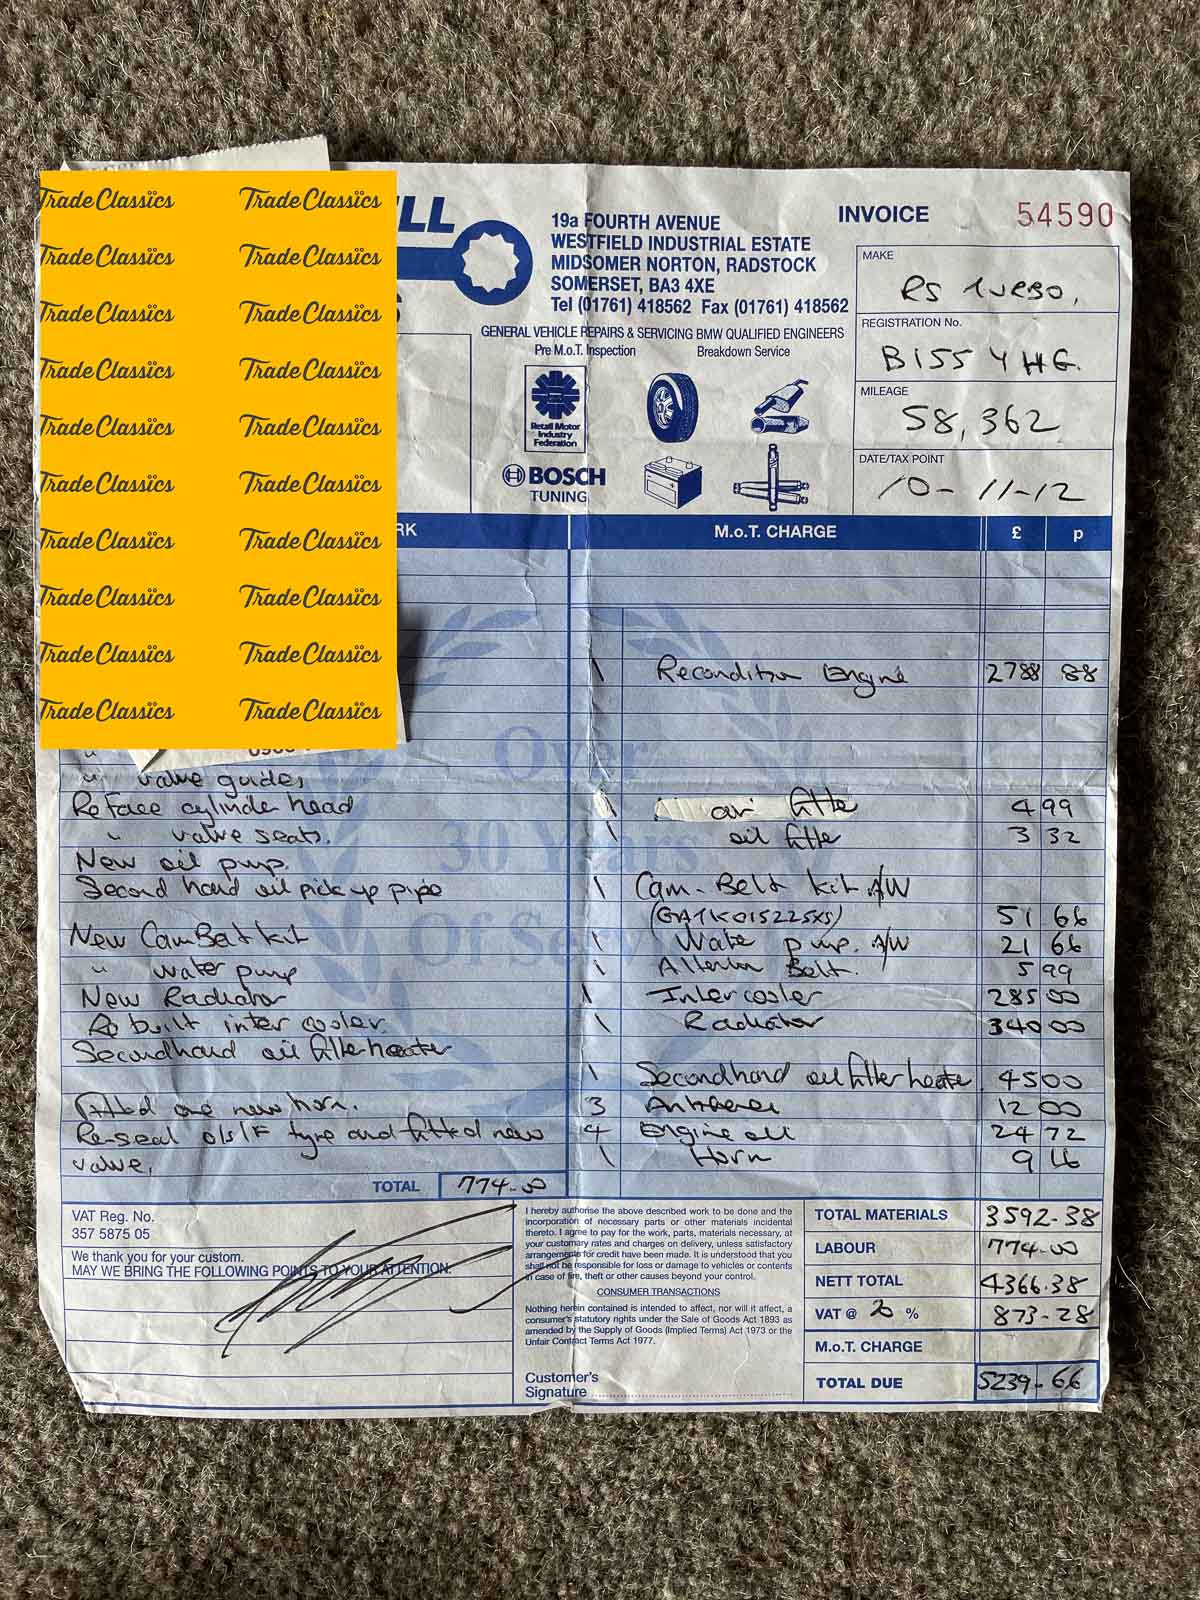 Trade Classics Trade Classics
Trade Classics Trade Classics
Trade Classics Trade Classics
Trade Classics Trade Classics
Trade Classics Trade Classics
Trade Classics Trade Classics
Trade Classics Trade Classics
Trade Classics Trade Classics
Trade Classics Trade Classics
Trade Classics Trade Classics
19a FOURTH AVENUE
WESTFIELD INDUSTRIAL ESTATE
MIDSOMER NORTON, RADSTOCK
SOMERSET, BA3 4XE
Tel (01761) 418562 Fax (01761) 418562
GENERAL VEHICLE REPAIRS & SERVICING BMW QUALIFIED ENGINEERS
Pre M.o.T. Inspection Breakdown Service
Retail Motor
Industry
Federation
BOSCH
TUNING
INVOICE 54590
MAKE
RS TURBO.
REGISTRATION No.
B155 YHG.
MILEAGE
58,362
DATE/TAX POINT
10-11-12
M.o.T. CHARGE £ p
Over
30 Years
Of Service
" valve guides
Reface cylinder head
" valve seats.
New oil pump.
Second hand oil pick up pipe
New Cam Belt kit
" water pump
New Radiator
Re built inter cooler.
Secondhand oil filter heater
Fitted one new horn.
Re-seal o/s/F tyre and fitted new
valve.
TOTAL 774-00
1 Recondition Engine 2788 88
1 air filter 4 99
1 oil filter 3 32
1 Cam-Belt kit A/W
(GATK015225XS) 51 66
1 Water pump. A/W 21 66
1 Alternator Belt. 5 99
1 Intercooler 285 00
1 Radiator 340 00
1 Secondhand oil filter heater 45 00
3 Antifreeze 12 00
4 Engine oil 24 72
1 Horn 9 16
VAT Reg. No.
357 5875 05
We thank you for your custom.
MAY WE BRING THE FOLLOWING POINTS TO YOUR ATTENTION.
I hereby authorise the above described work to be done and the
incorporation of necessary parts or other materials incidental
thereto. I agree to pay for the work, parts, materials necessary, at
your customary rates and charges on delivery, unless satisfactory
arrangements for credit have been made. It is understood that you
shall not be responsible for loss or damage to vehicles or contents
in case of fire, theft or other causes beyond your control.
CONSUMER TRANSACTIONS
Nothing herein contained is intended to affect, nor will it affect, a
consumer's statutory rights under the Sale of Goods Act 1893 as
amended by the Supply of Goods (Implied Terms) Act 1973 or the
Unfair Contract Terms Act 1977.
Customer's
Signature
TOTAL MATERIALS 3592-38
LABOUR 774-00
NETT TOTAL 4366-38
VAT @ 20 % 873-28
M.o.T. CHARGE
TOTAL DUE 5239-66